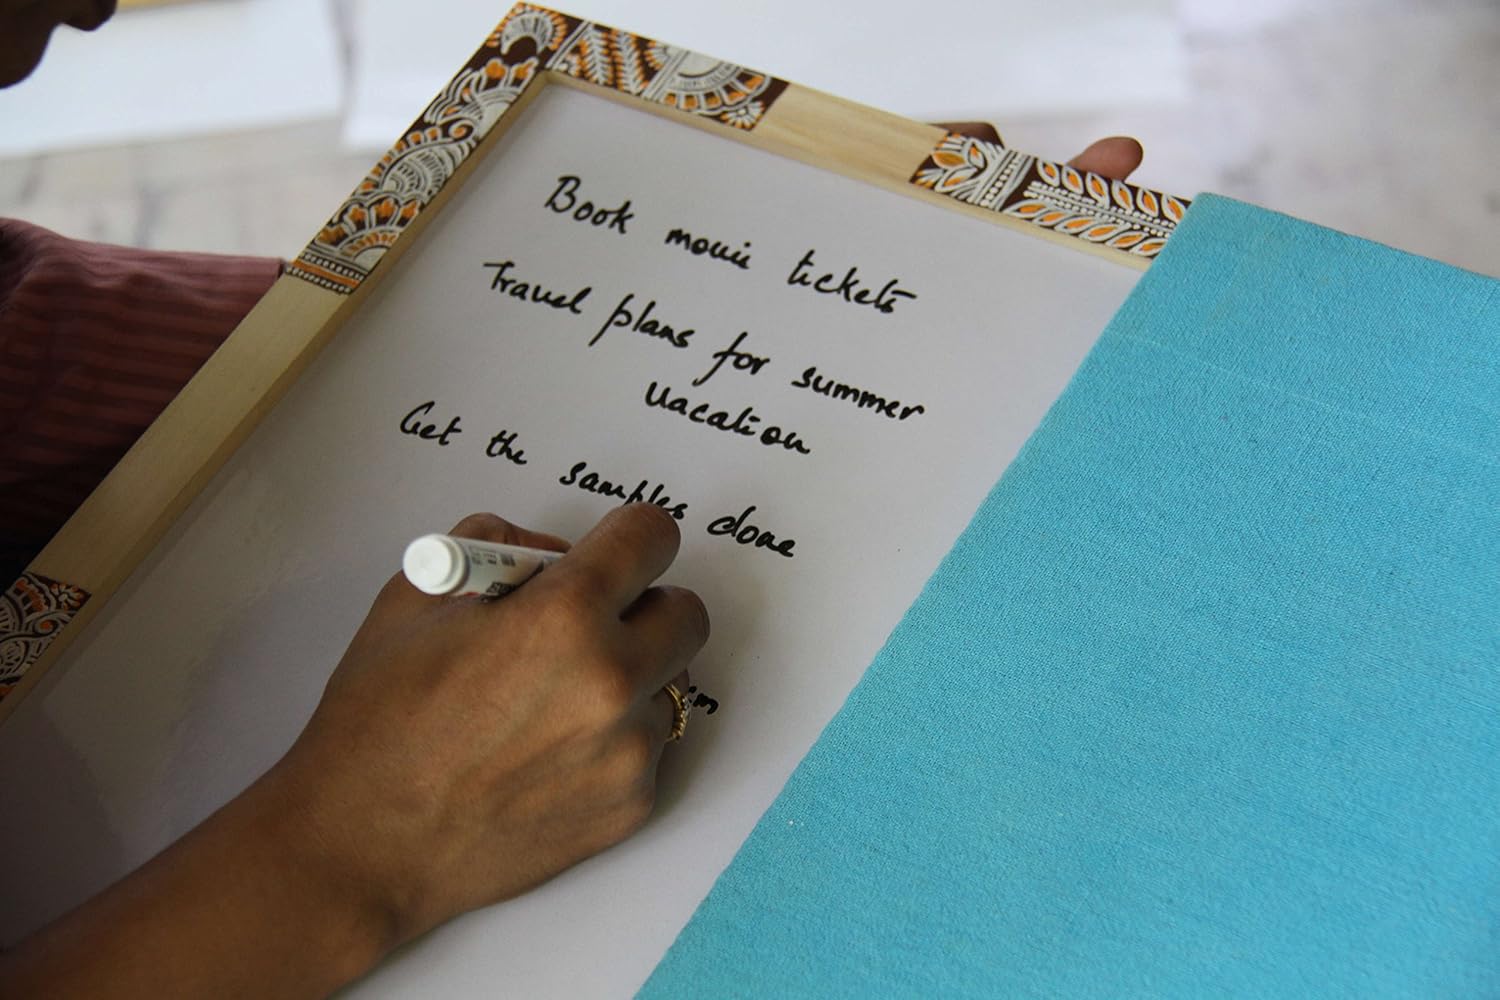 Book movie tickets
Travel plans for summer
vacation
Get the samples done